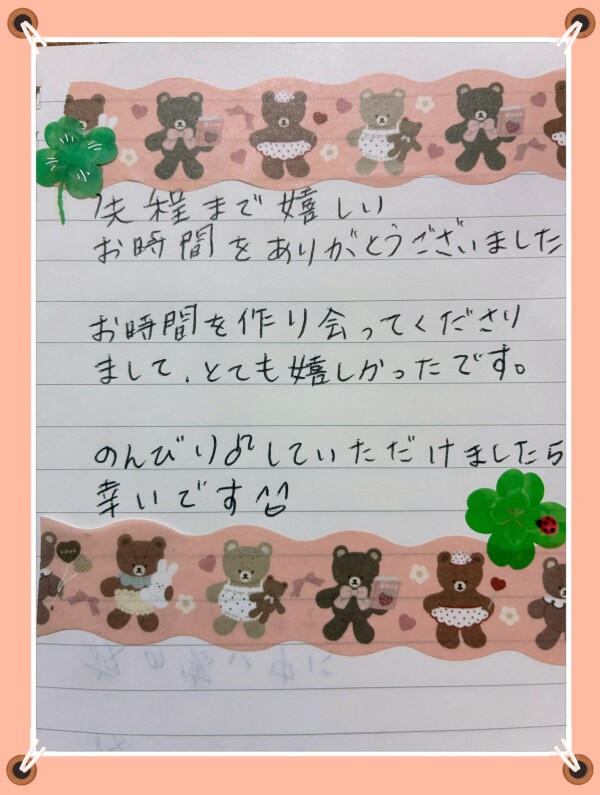 先程まで嬉しい
お時間をありがとうございました
お時間を作り会ってくださり
まして、とても嬉しかったです。
のんびり♫していただけましたら
幸いです^^